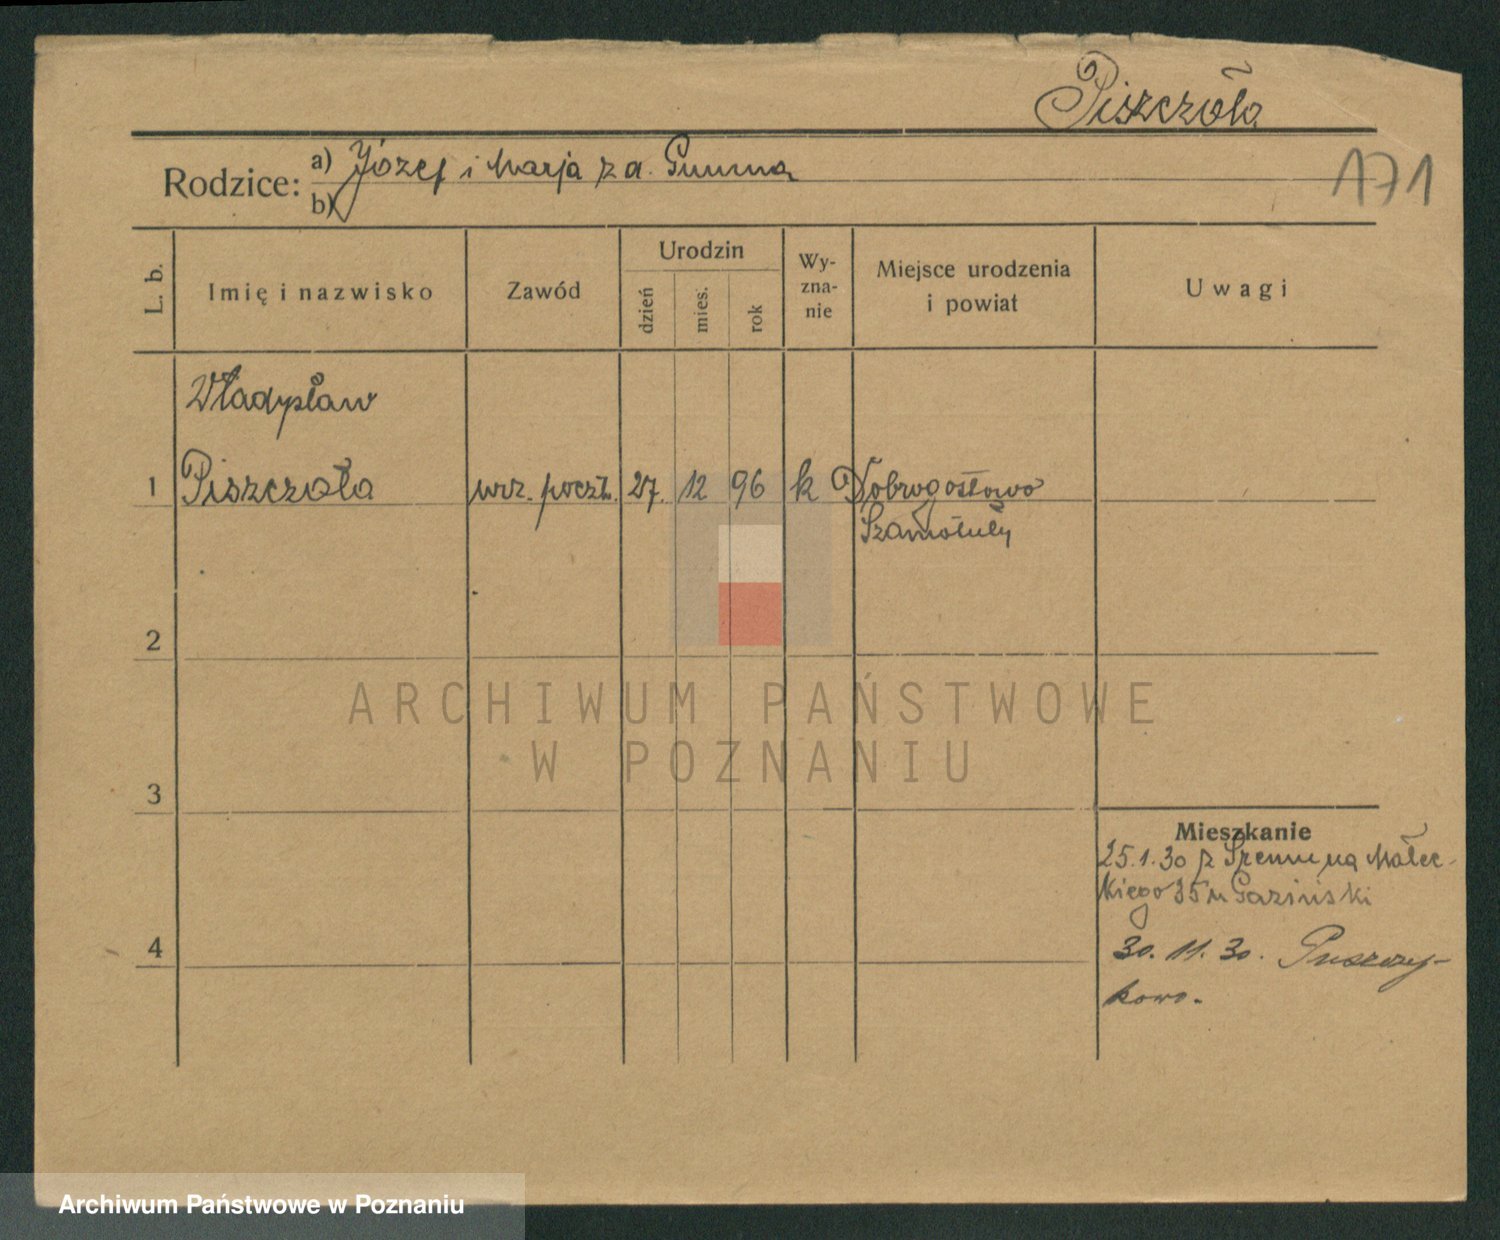 Piszczoła
Rodzice: a) Józef i Marja z d.
b)
171
L. b.
Imię i nazwisko
Zawód
Urodzin
dzień
mies.
rok
Wy-
zna-
nie
Miejsce urodzenia
i powiat
Uwagi
Władysław
1 Piszczoła urz. poczt. 27. 12 96 k Dobrogostowo
Szamotuły
2
3
4
Mieszkanie
25.1.30 z Śremu na Małec-
kiego 35 m
30. 11. 30. Puszczy-
kowo.
ARCHIWUM PAŃSTWOWE
W POZNANIU
Archiwum Państwowe w Poznaniu